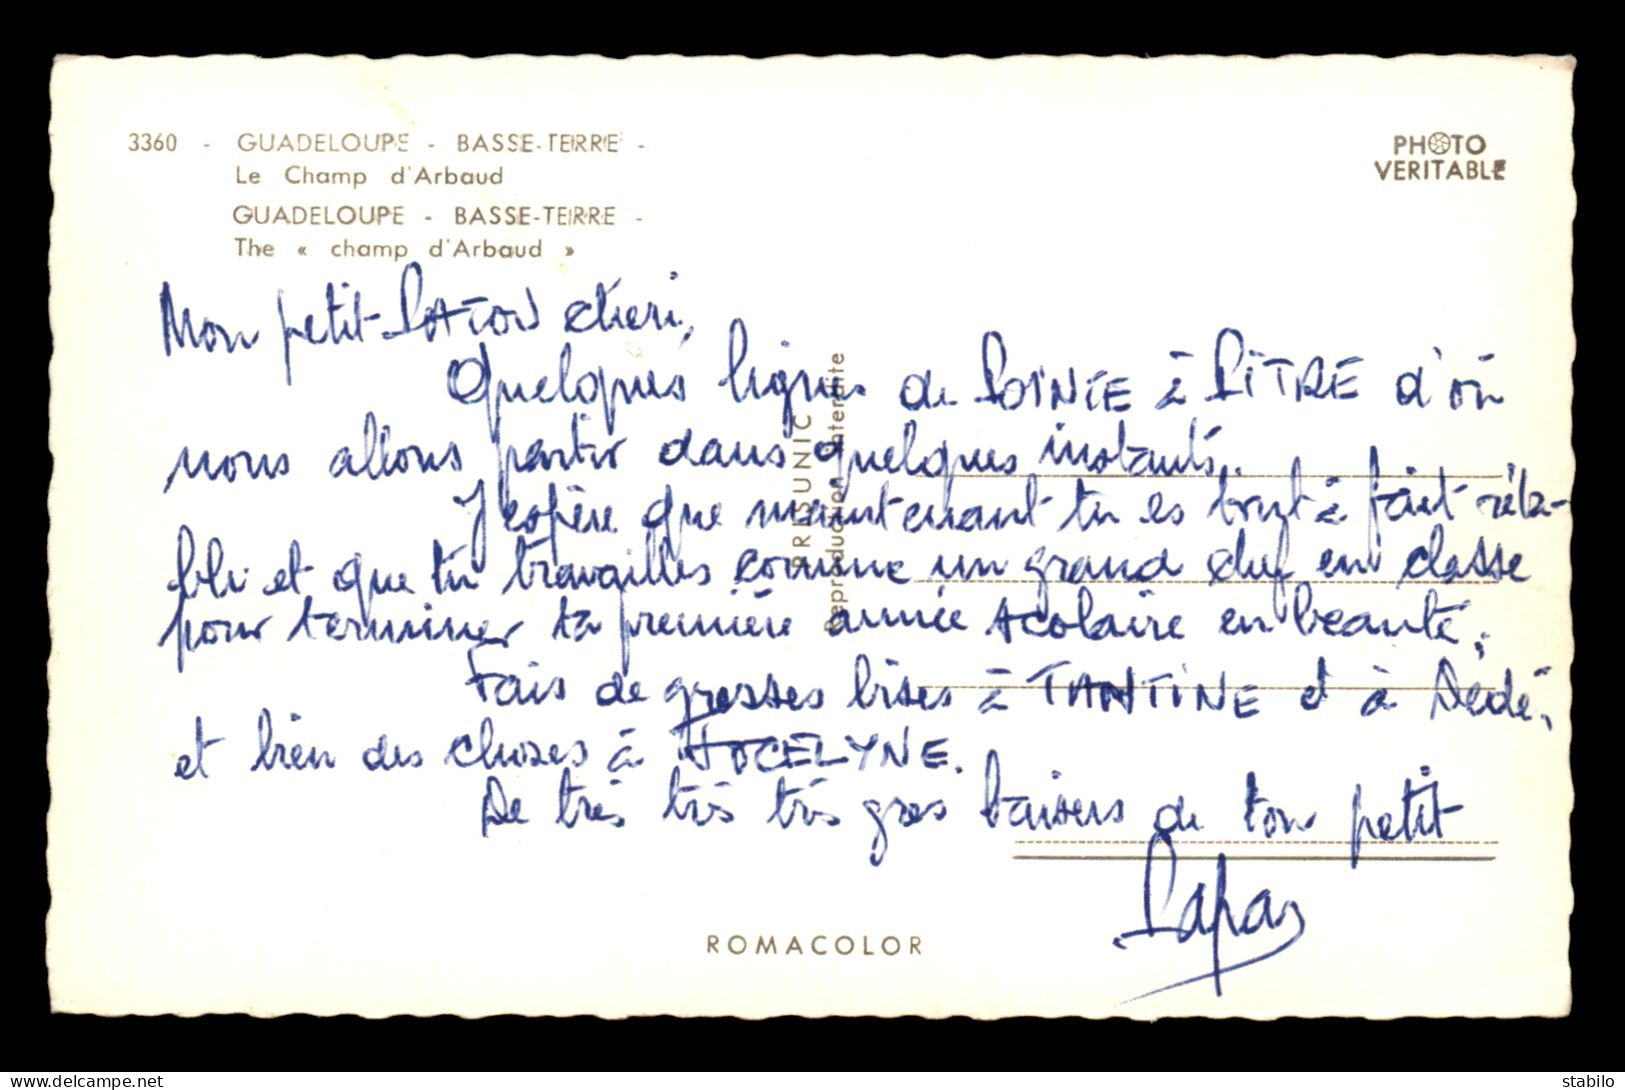 3360 - GUADELOUPE - BASSE-TERRE -
Le Champ d'Arbaud
GUADELOUPE - BASSE-TERRE -
The « champ d'Arbaud »
PHOTO
VERITABLE
Mon petit chéri,
Quelques lignes de POINTE à PITRE d'où
nous allons partir dans quelques instants.
J'espère que maintenant tu es tout à fait réta-
bli et que tu travailles comme un grand chef en classe
pour terminer ta première année scolaire en beauté.
Fais de grosses bises à TANTINE et à Dédé,
et bien des choses à JOCELYNE.
De très très très gros baisers de ton petit
Papa
PRISUNIC
Reproduction interdite
ROMACOLOR
delcampe.net
stabilo